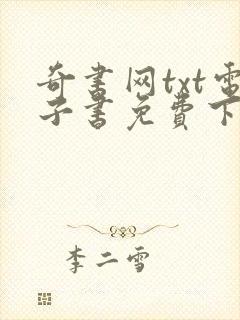 奇书网txt电
子书免费下
李二雪